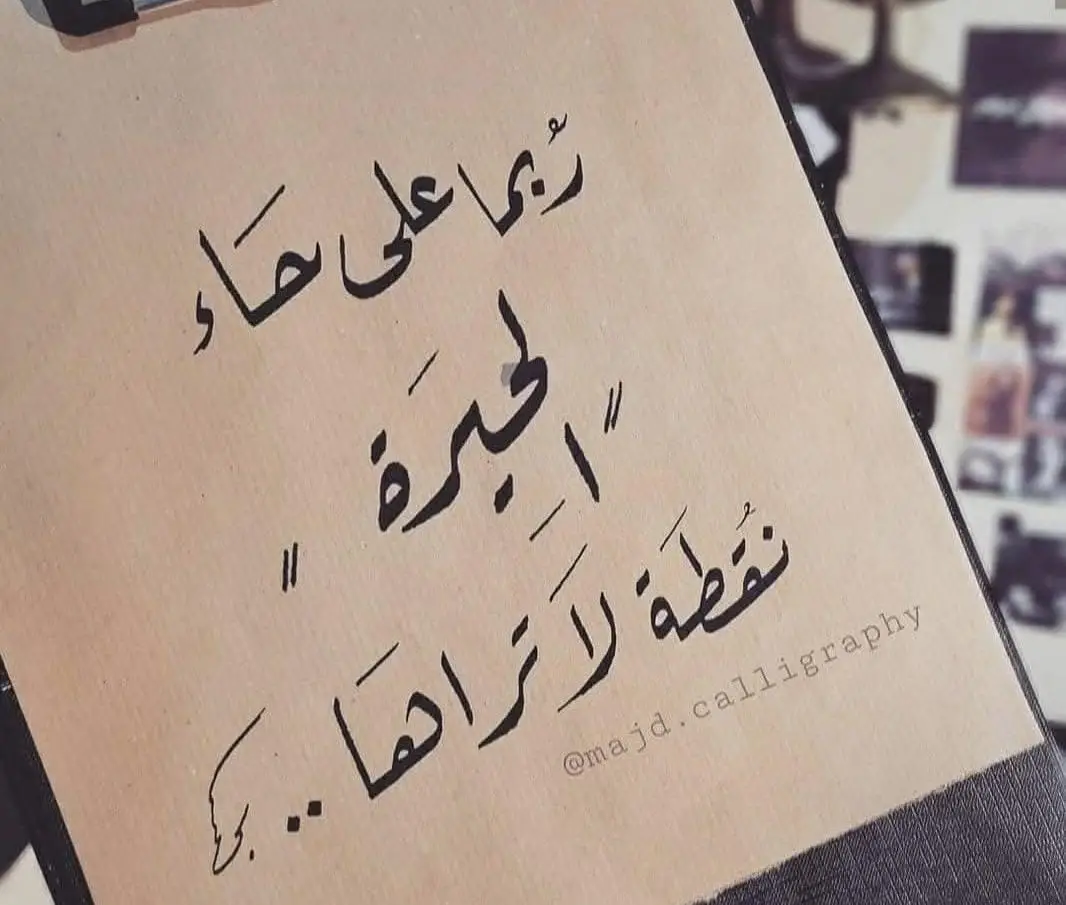 رُبما على حَاء
"الحَيرة"
نُقطَة لاَ تَراهَا ..
@majd.calligraphy